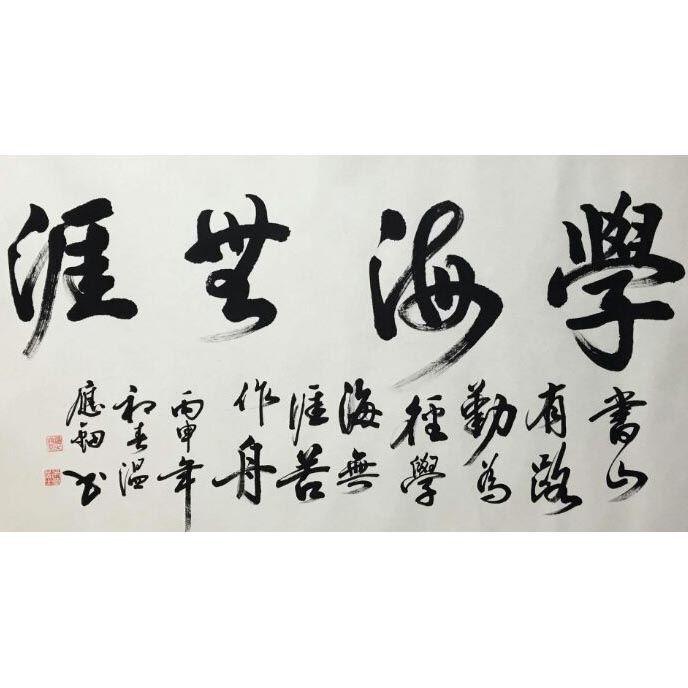 學海無涯
書山
有路
勤為
徑學
海無
涯苦
作舟
丙申年
初春溫
應翱書